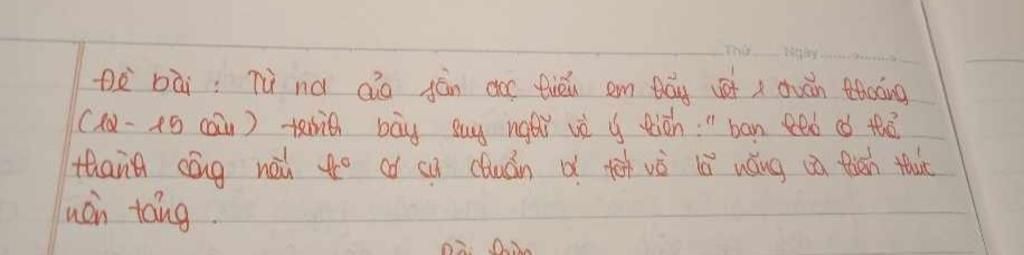 Thứ Ngày
Đề bài : Từ nd của phần đọc hiểu em hãy viết 1 đoạn khoảng
(12 - 15 câu) trình bày suy nghĩ về ý kiến : " bạn khó có thể
thành công nếu ko có sự chuẩn bị tốt về kĩ năng và kiến thức
nền tảng .
Bài làm